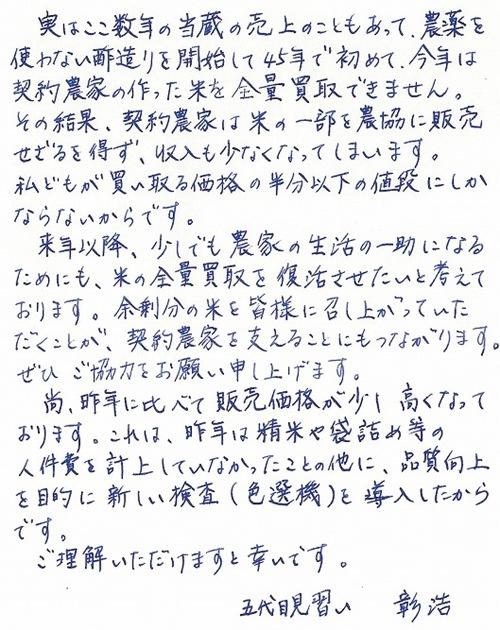 実はここ数年の当蔵の売上のこともあって、農薬を
使わない酢造りを開始して45年で初めて、今年は
契約農家の作った米を全量買取できません。
その結果、契約農家は米の一部を農協に販売
せざるを得ず、収入も少なくなってしまいます。
私どもが買い取る価格の半分以下の値段にしか
ならないからです。
来年以降、少しでも農家の生活の一助になる
ためにも、米の全量買取を復活させたいと考えて
おります。余剰分の米を皆様に召し上がっていた
だくことが、契約農家を支えることにもつながります。
ぜひご協力をお願い申し上げます。
尚、昨年に比べて販売価格が少し高くなって
おります。これは、昨年は精米や袋詰め等の
人件費を計上していなかったことの他に、品質向上
を目的に新しい検査(色選機)を導入したから
です。
ご理解いただけますと幸いです。
五代目見習い 彰浩